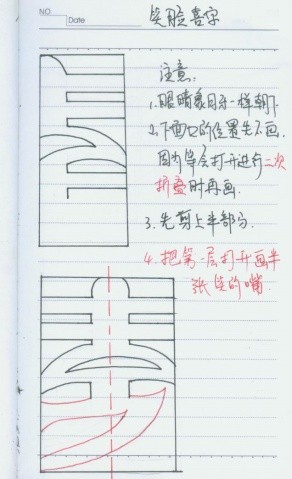 NO
Date
笑脸喜字
注意:
1.眼睛象月牙一样朝下
2.下面口的位置先不画.
因为等会打开进行二次
折叠时再画.
3.先剪上半部分.
4.把第一层打开画半
张笑的嘴.